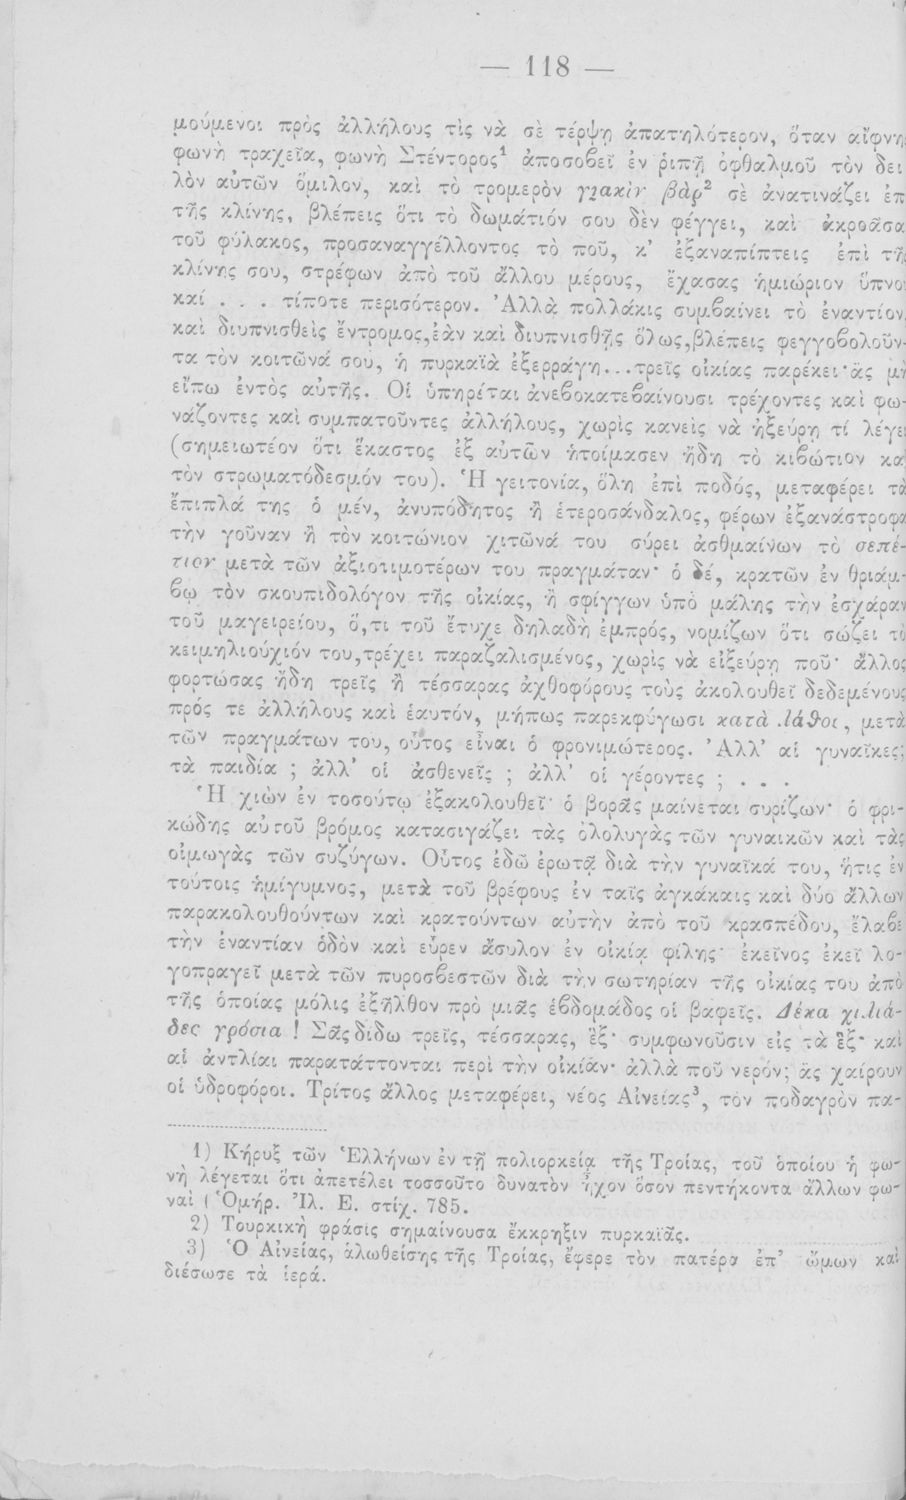 — 118 —
μούμενοι πρὸς ἀλλήλους τὶς νὰ σὲ τέρψῃ ἀπατηλότερον, ὅταν αἴφνη
φωνὴ τραχεῖα, φωνὴ Στέντορος¹ ἀποσοβεῖ ἐν ῥιπῇ ὀφθαλμοῦ τὸν δει
λὸν αὐτῶν ὅμιλον, καὶ τὸ τρομερὸν γιακὶν βὰρ² σὲ ἀνατινάζει ἐπ
τῆς κλίνης, βλέπεις ὅτι τὸ δωμάτιόν σου δὲν φέγγει, καὶ ἀκροᾶσα
τοῦ φύλακος, προσαναγγέλλοντος τὸ ποῦ, κ’ ἐξαναπίπτεις ἐπὶ τῆ
κλίνης σου, στρέφων ἀπὸ τοῦ ἄλλου μέρους, ἔχασας ἡμιώριον ὕπνο
καί . . . τίποτε περισότερον. Ἀλλὰ πολλάκις συμβαίνει τὸ ἐναντίον
καὶ διυπνισθεὶς ἔντρομος,ἐὰν καὶ διυπνισθῇς ὅλως,βλέπεις φεγγοβολοῦν-
τα τὸν κοιτῶνά σου, ἡ πυρκαϊὰ ἐξερράγη...τρεῖς οἰκίας παρέκει·ἂς μὴ
εἴπω ἐντὸς αὐτῆς. Οἱ ὑπηρέται ἀνεβοκατεβαίνουσι τρέχοντες καὶ φω-
νάζοντες καὶ συμπατοῦντες ἀλλήλους, χωρὶς κανεὶς νὰ ἠξεύρῃ τί λέγει
(σημειωτέον ὅτι ἕκαστος ἐξ αὐτῶν ἡτοίμασεν ἤδη τὸ κιβώτιον κα
τὸν στρωματόδεσμόν του). Ἡ γειτονία, ὅλη ἐπὶ ποδός, μεταφέρει τὰ
ἔπιπλά της ὁ μέν, ἀνυπόδητος ἢ ἑτεροσάνδαλος, φέρων ἐξανάστροφα
τὴν γοῦναν ἢ τὸν κοιτώνιον χιτῶνά του σύρει ἀσθμαίνων τὸ σεπέ-
τιον μετὰ τῶν ἀξιοτιμοτέρων του πραγμάταν· ὁ δέ, κρατῶν ἐν θριάμ-
βῳ τὸν σκουπιδολόγον τῆς οἰκίας, ἢ σφίγγων ὑπὸ μάλης τὴν ἐσχάραν
τοῦ μαγειρείου, ὅ,τι τοῦ ἔτυχε δηλαδὴ ἐμπρός, νομίζων ὅτι σώζει τὸ
κειμηλιούχιόν του,τρέχει παραζαλισμένος, χωρὶς νὰ εἰξεύρῃ ποῦ· ἄλλος
φορτώσας ἤδη τρεῖς ἢ τέσσαρας ἀχθοφόρους τοὺς ἀκολουθεῖ δεδεμένους
πρός τε ἀλλήλους καὶ ἑαυτόν, μήπως παρεκφύγωσι κατὰ λάθοι, μετὰ
τῶν πραγμάτων του, οὗτος εἶναι ὁ φρονιμώτερος. Ἀλλ’ αἱ γυναῖκες;
τὰ παιδία ; ἀλλ’ οἱ ἀσθενεῖς ; ἀλλ’ οἱ γέροντες ; . . .
Ἡ χιὼν ἐν τοσούτῳ ἐξακολουθεῖ· ὁ βορᾶς μαίνεται συρίζων· ὁ φρι-
κώδης αὐτοῦ βρόμος κατασιγάζει τὰς ὀλολυγὰς τῶν γυναικῶν καὶ τὰς
οἰμωγὰς τῶν συζύγων. Οὗτος ἐδῶ ἐρωτᾷ διὰ τὴν γυναῖκά του, ἥτις ἐν
τούτοις ἡμίγυμνος, μετὰ τοῦ βρέφους ἐν ταῖς ἀγκάκαις καὶ δύο ἄλλων
παρακολουθούντων καὶ κρατούντων αὐτὴν ἀπὸ τοῦ κρασπέδου, ἔλαβε
τὴν ἐναντίαν ὁδὸν καὶ εὗρεν ἄσυλον ἐν οἰκίᾳ φίλης· ἐκεῖνος ἐκεῖ λο-
γοπραγεῖ μετὰ τῶν πυροσβεστῶν διὰ τὴν σωτηρίαν τῆς οἰκίας του ἀπὸ
τῆς ὁποίας μόλις ἐξῆλθον πρὸ μιᾶς ἑβδομάδος οἱ βαφεῖς. Δέκα χιλιά-
δες γρόσια ! Σᾶς δίδω τρεῖς, τέσσαρας, ἓξ· συμφωνοῦσιν εἰς τὰ ἓξ· καὶ
αἱ ἀντλίαι παρατάττονται περὶ τὴν οἰκίαν· ἀλλὰ ποῦ νερόν; ἂς χαίρουν
οἱ ὑδροφόροι. Τρίτος ἄλλος μεταφέρει, νέος Αἰνείας³, τὸν ποδαγρὸν πα-
1) Κήρυξ τῶν Ἑλλήνων ἐν τῇ πολιορκείᾳ τῆς Τροίας, τοῦ ὁποίου ἡ φω-
νὴ λέγεται ὅτι ἀπετέλει τοσσοῦτο δυνατὸν ἦχον ὅσον πεντήκοντα ἄλλων φω-
ναὶ (Ὁμήρ. Ἰλ. Ε. στίχ. 785.
2) Τουρκικὴ φράσις σημαίνουσα ἔκκρηξιν πυρκαϊᾶς.
3) Ὁ Αἰνείας, ἁλωθείσης τῆς Τροίας, ἔφερε τὸν πατέρα ἐπ’ ὤμων καὶ
διέσωσε τὰ ἱερά.